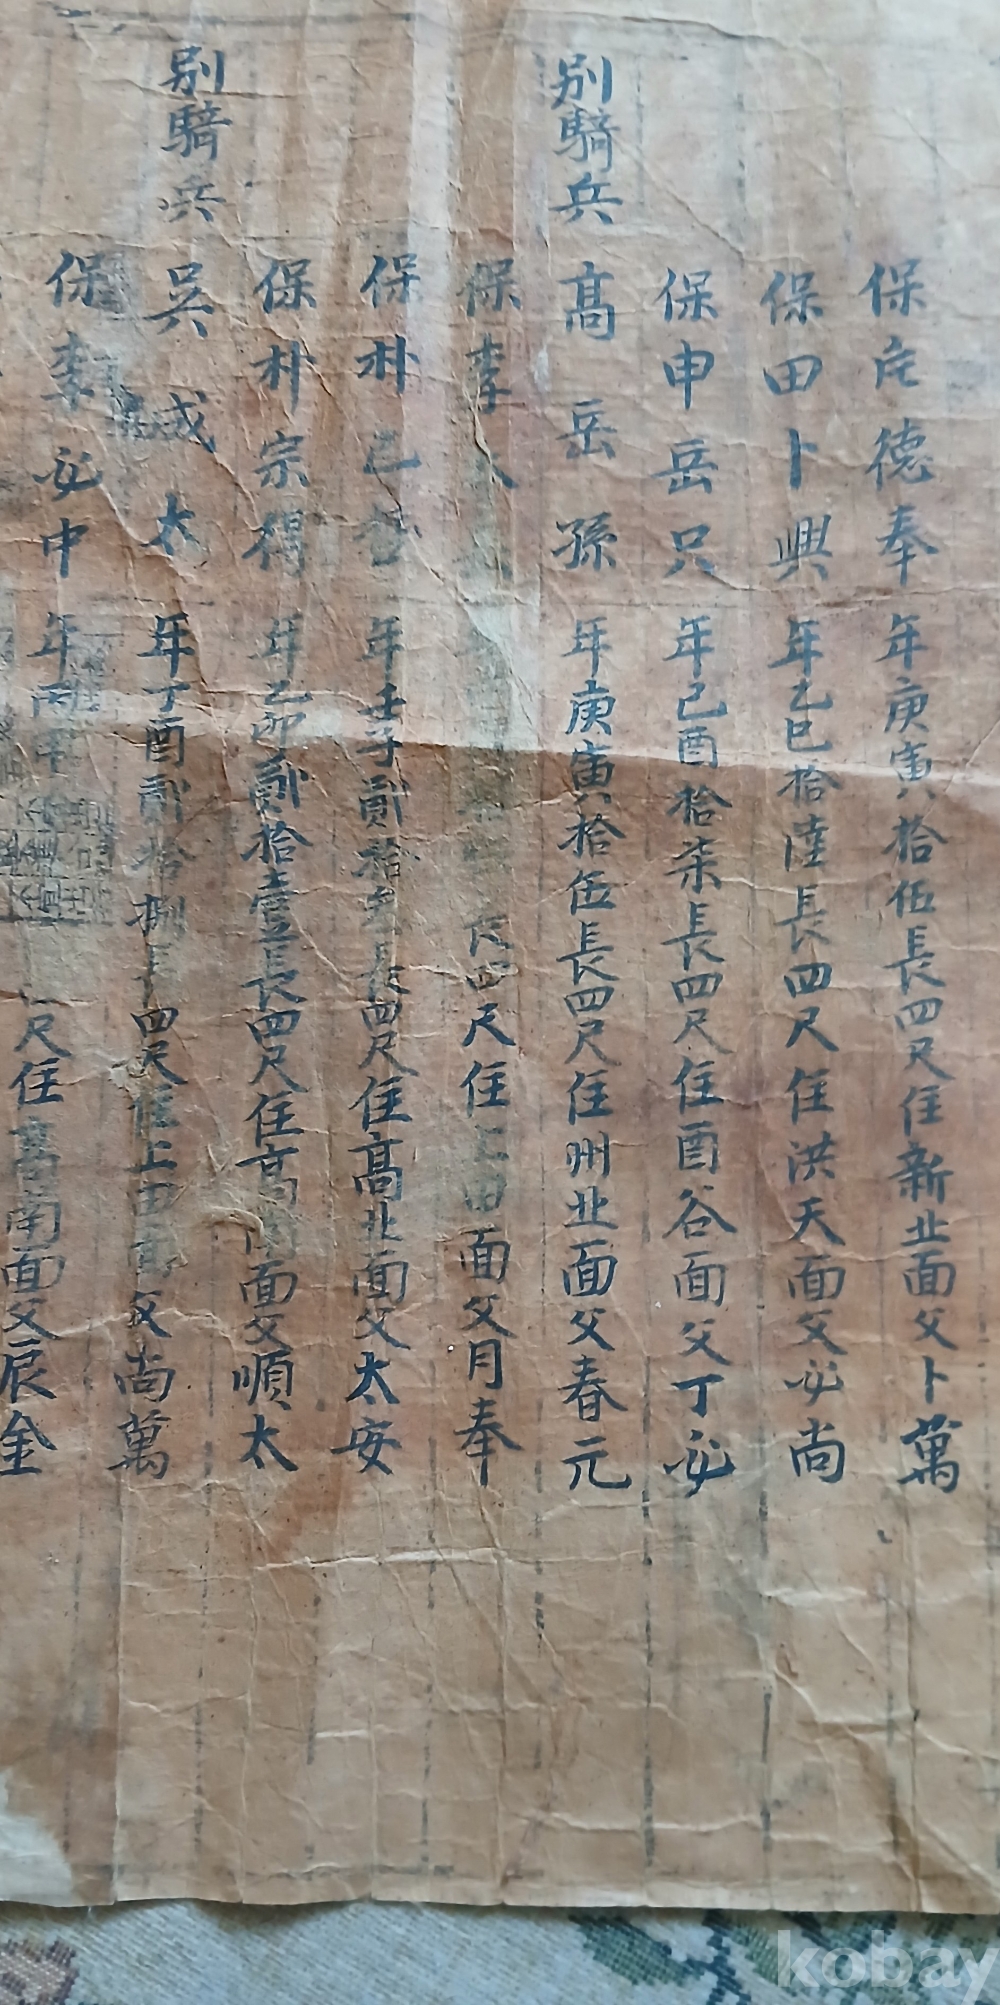 保 德奉 年庚寅拾伍長四尺住新北面父卜萬
保田卜興 年乙巳拾陸長四尺住洪天面父必尚
保申岳只 年己酉拾柒長四尺住酉谷面父丁必
別騎兵 高岳孫 年庚寅拾伍長四尺住州北面父春元
保李 長四尺住上田面父月奉
保朴己 年壬子貳拾參長四尺住高北面父太安
保朴宗得 年乙卯貳拾壹長四尺住高南面父順太
別騎兵 吳戒太 年丁酉貳拾捌長四尺住上田面父尚萬
保李必中 年丙 尺住高南面父辰金
kobay